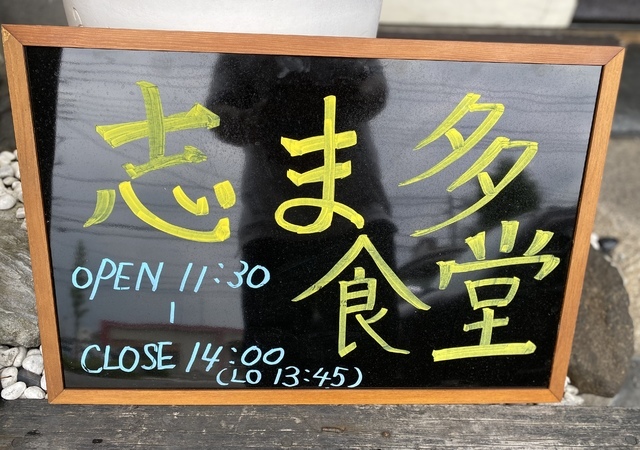 志ま多
食堂
OPEN 11:30
|
CLOSE 14:00
(LO 13:45)